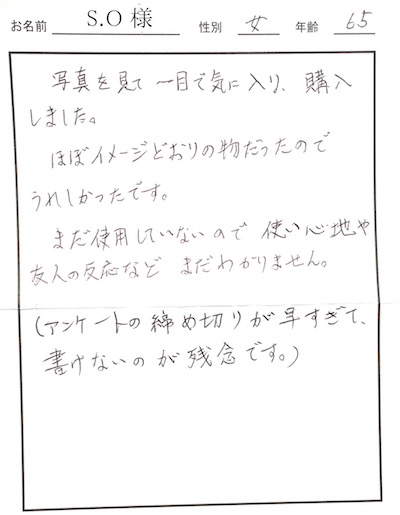 お名前 S.O 様 性別 女 年齢 65
写真を見て 一目で気に入り、購入
しました。
ほぼイメージどおりの物だったので
うれしかったです。
まだ使用していないので 使い心地や
友人の反応など まだわかりません。
(アンケートの締め切りが早すぎて、
書けないのが残念です。)